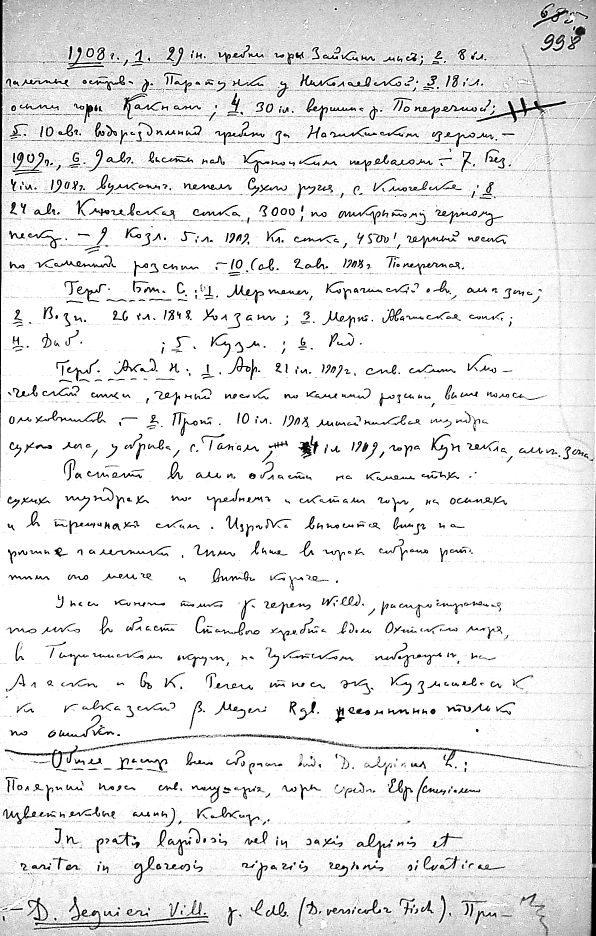 685
998
1908 г., 1. 29 іюн. гребни горы Зайкинъ мысъ; 2. 8 іл.
галечные острова р. Паратунки у Николаевской; 3. 18 іл.
осыпи горы ; 4. 30 іл. вершина р. Поперечной;
5. 10 авг. водораздѣльный гребень за Начикинскимъ озеромъ. —
1909 г., 6. 9 авг. высоты надъ Кроноцкимъ переваломъ. — 7. Без.
4 іл. 1908 г. вулканич. пепелъ Сухого ручья, с. Ключевское; 8.
24 ав. Ключевская сопка, 3000' по открытому черному
песку. — 9. Козл. 5 іл. 1909. Кл. сопка, 4500', черный песокъ
по каменной розсыпи. — 10. Сав. 2 авг. 1908 г. Поперечная.
Герб. Бот. С.: 1. Мертенсъ, Карагинскій овъ, альп. зона;
2. Возн. 26 іл. 1848. ; 3. Мерт. Авачинская сопк.;
4. ; 5. Кузм.; 6. Рид.
Герб. Акад. Н.: 1. 21 іл. 1909 г. склонъ Клю-
чевской сопки, черный песокъ по каменной розсыпи, выше полосы
ольховниковъ. — 2. Прот. 10 іл. 1908 лишайниковая тундра
сухого лога, у обрыва, с. ; 4 іл. 1909, гора , альп. зона.
Растетъ въ альп. области на каменистыхъ
сухихъ тундрахъ по гребнямъ и скатамъ горъ, на осыпяхъ
и въ трещинахъ скалъ. Изрѣдка выносится внизъ на
рѣчные галечники. Чѣмъ выше въ горахъ собрано раст.
тѣмъ оно мельче и короче.
У насъ конечно только γ. repens Willd., распространенная
только въ области Станового хребта вдоль Охотскаго моря,
въ Гижигинскомъ округѣ, на Чукотскомъ побережьи, на
Аляскѣ и въ К. Регель отнесъ экз. Кузмищева
къ кавказской β. Meyeri Rgl. несомнѣнно только
по ошибкѣ.
Общее распр. всего сборнаго вида D. alpinus L.:
Полярный поясъ сѣв. полушарія, горы средн. Евр. (спеціально
известняковые альпы), Кавказъ.
In pratis lapidosis vel in saxis alpinis et
rariter in glareosis ripariis regionis silvaticae
— D. Seguieri Vill. γ. Ldb. (D. versicolor Fisch). При-